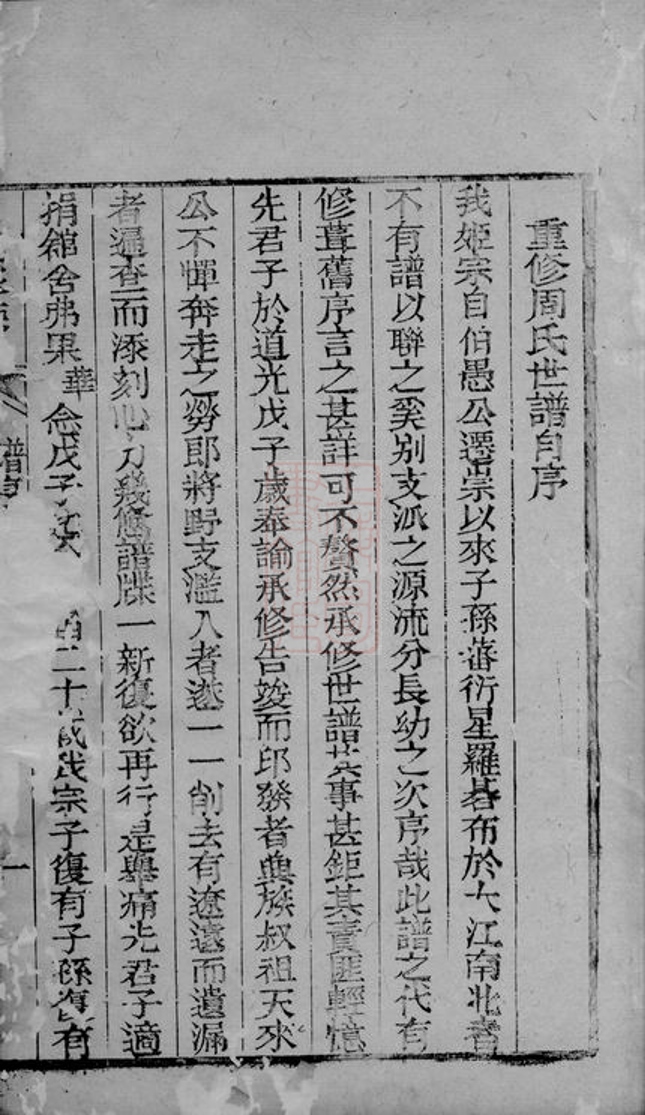 重修周氏世譜自序
我姬宗自伯愚公遷宗以來子孫蕃衍星羅碁布於大江南北者
不有譜以聯之奚別支派之源流分長幼之次序哉此譜之代有
修葺舊序言之甚詳可不贅然承修世譜其事甚鉅其責匪輕憶
先君子於道光戊子歲奉諭承修告竣而印發者與族叔祖天來
公不憚奔走之勞郎將野支濫入者遂一一削去有遼遠而遺漏
者遍查而添刻 譜牒一新復欲再行是舉痛先君子適
捐舘舍弗果華念戊子 二十 歲我宗子復有子孫復有
譜序
一